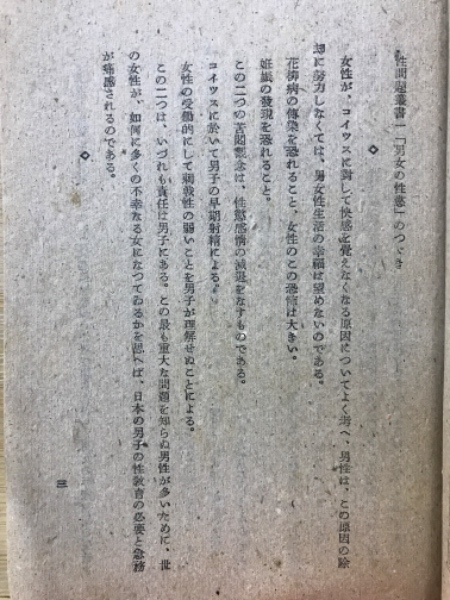 性問題叢書一「男女の性慾」のつゞき
◇
女性が、コイツスに對して快感を覺えなくなる原因についてよく考へ、男性は、この原因の除
却に努力しなくては、男女性生活の幸福は望めないのである。
花柳病の傳染を恐れること、女性のこの恐怖は大きい。
妊娠の發現を恐れること。
この二つの苦悶觀念は、性慾感情の減退をなすものである。
コイツスに於いて男子の早期射精による。
女性の受働的にして性の弱いことを男子が理解せぬことによる。
この二つは、いづれも責任は男子にある。この最も重大な問題を知らぬ男性が多いために、世
の女性が、如何に多くの不幸なる女になつてゐるかを思へば、日本の男子の性敎育の必要と急務
が痛感されるのである。
◇
三